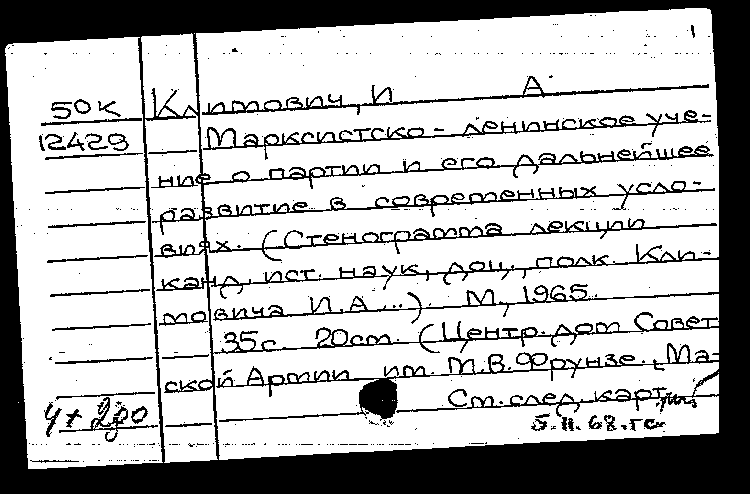 1
50к Климович, И А
12429 Марксистско-ленинское уче-
ние о партии и его дальнейшее
развитие в современных усло-
виях. (Стенограмма лекции
канд. ист. наук, доц., полк. Кли-
мовича И.А...). М., 1965.
35с. 20см. (Центр. дом Совет
ской Армии им. М.В.Фрунзе. Ма-
См. след. карт.
5.II.68.